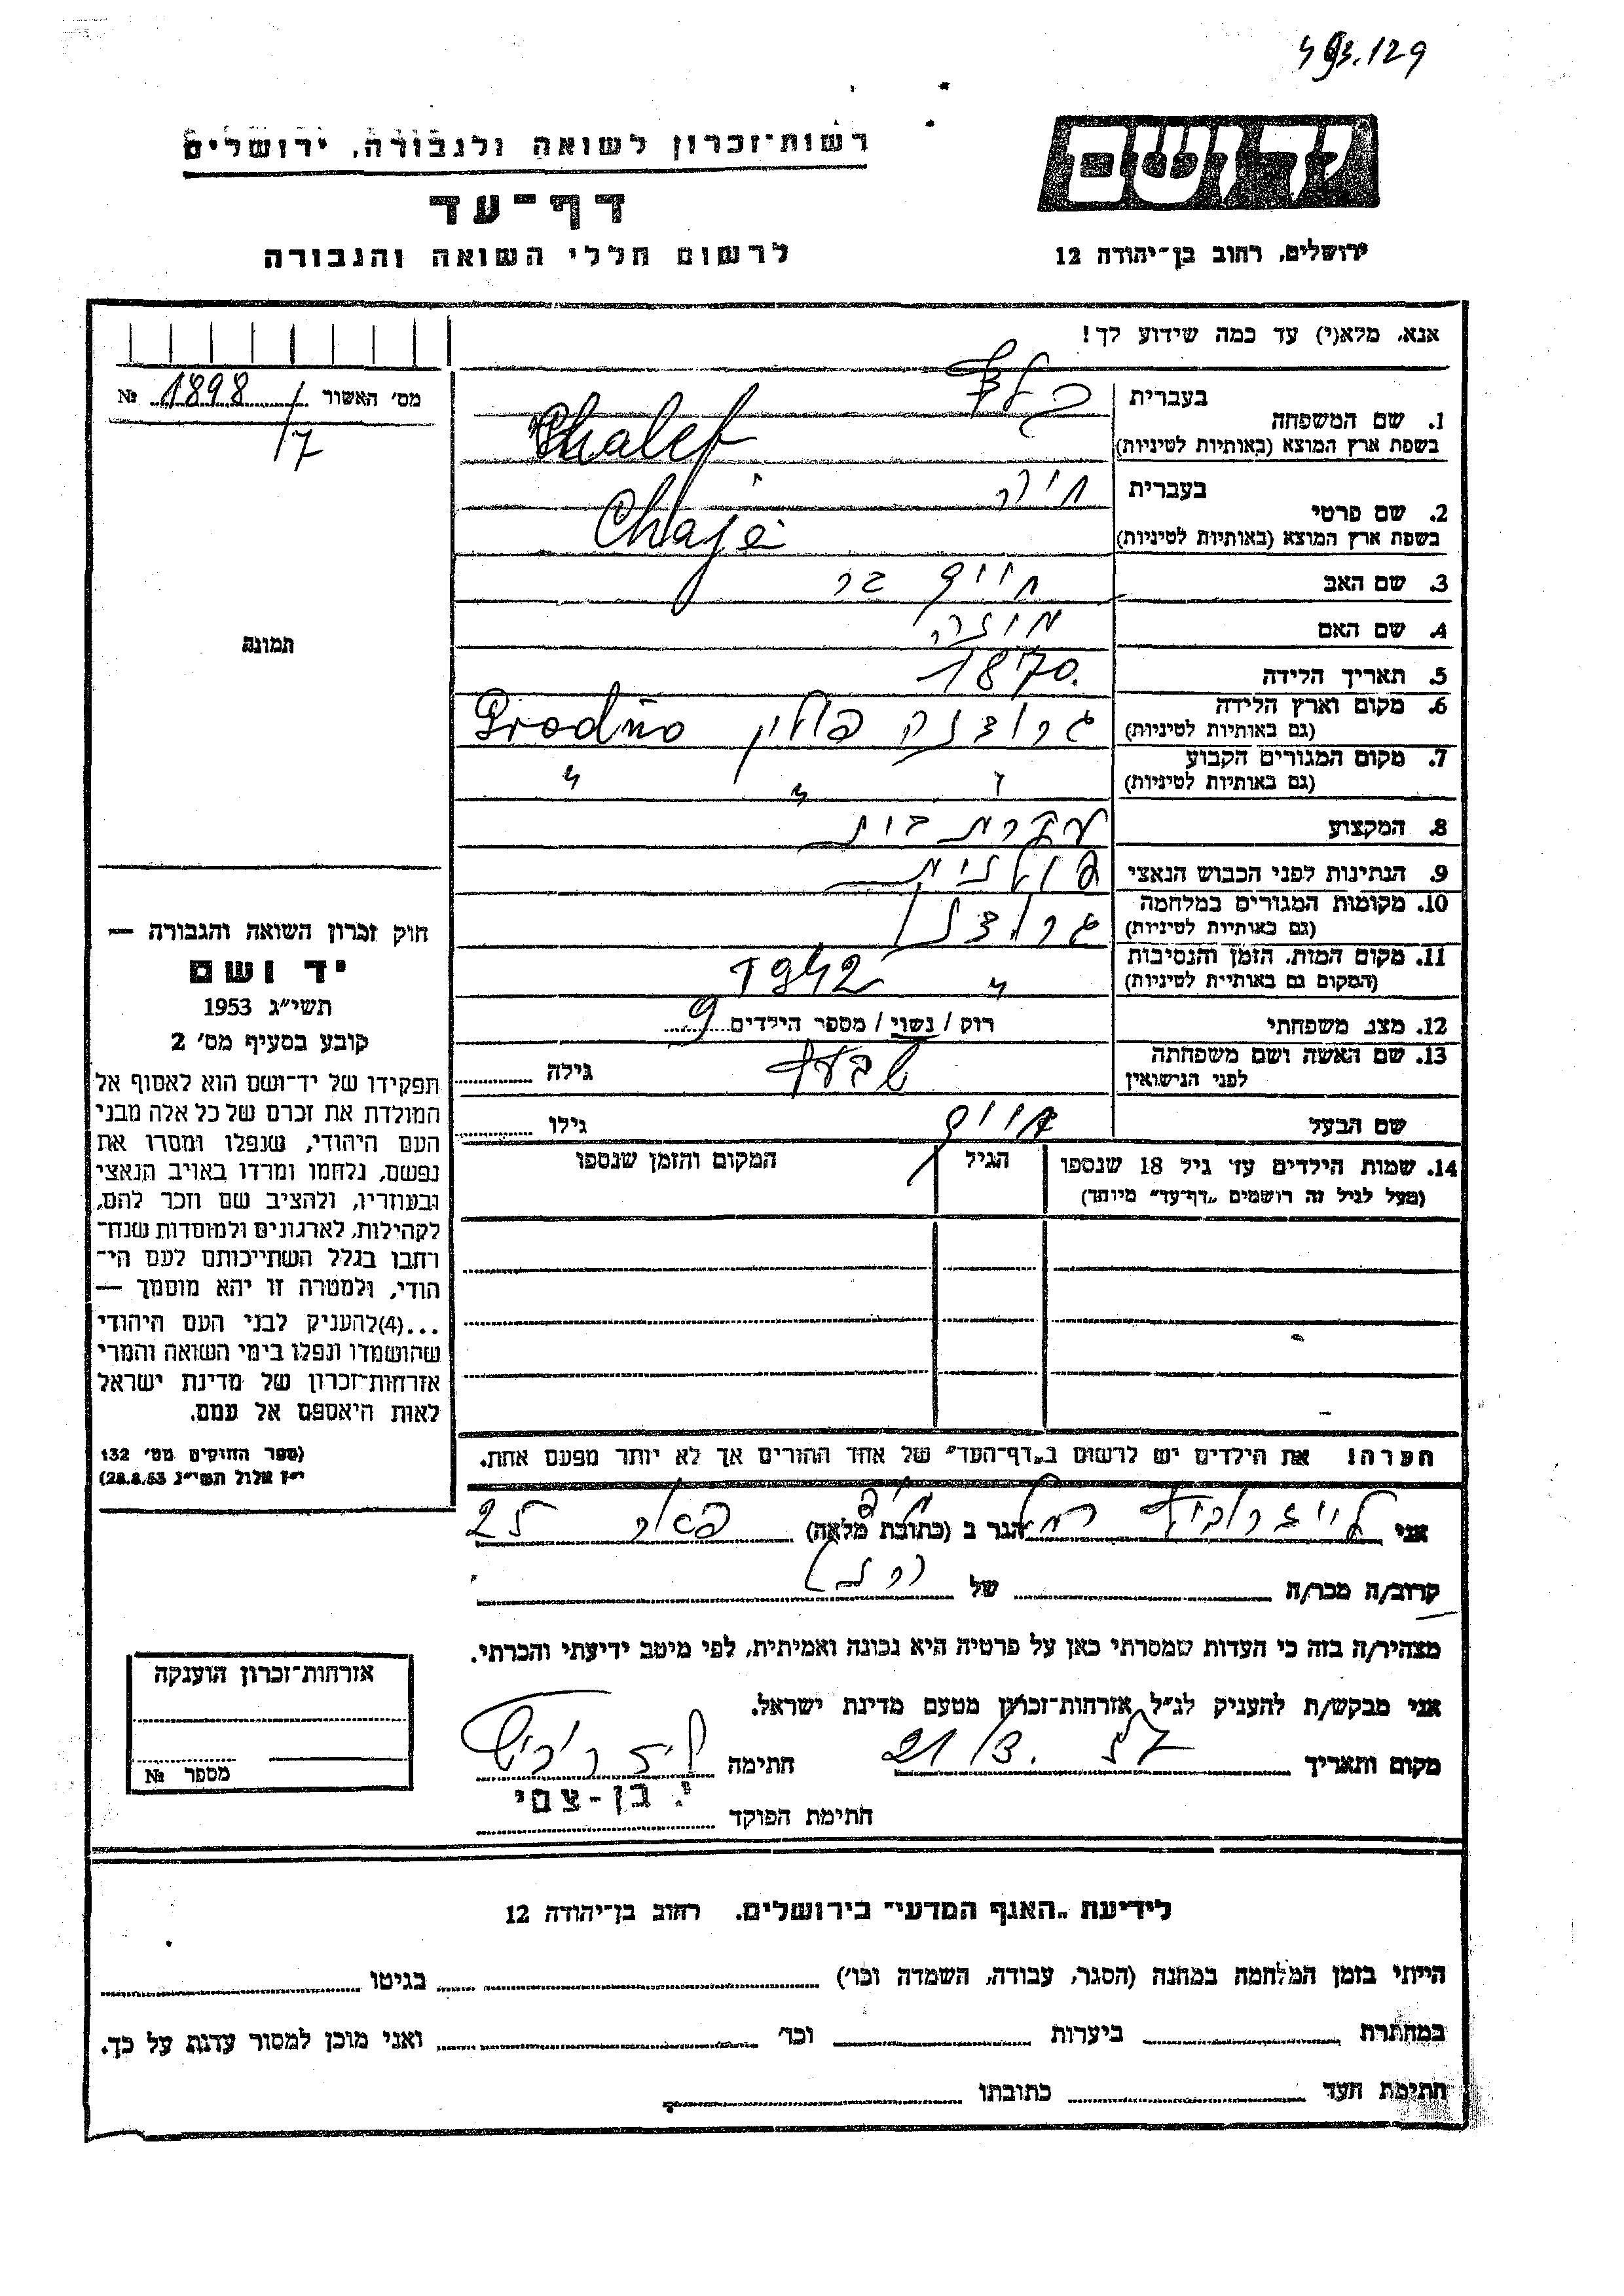 493.129
רשות־זכרון לשואה ולגבורה, ירושלים
דף־עד
לרשום חללי השואה והגבורה
יד ושם
ירושלים, רחוב בן־יהודה 12
אנא, מלא(י) עד כמה שידוע לך!
מס' האשור 1898 №
17
1. שם המשפחה
בעברית
בשפת ארץ המוצא (באותיות לטיניות) Chalef
2. שם פרטי
בעברית חיה
בשפת ארץ המוצא (באותיות לטיניות) Chaja
3. שם האב
4. שם האם
5. תאריך הלידה 1870.
6. מקום וארץ הלידה גרודנה פולין Grodno
(גם באותיות לטיניות)
7. מקום המגורים הקבוע " " "
(גם באותיות לטיניות)
8. המקצוע עקרת בית
9. הנתינות לפני הכבוש הנאצי פולנית
10. מקומות המגורים במלחמה גרודנה
(גם באותיות לטיניות)
11. מקום המות, הזמן והנסיבות " 1942
(המקום גם באותיות לטיניות)
12. מצב משפחתי רוק / נשוי / מספר הילדים 9
13. שם האשה ושם משפחתה
לפני הנישואין
גילה
שם הבעל
גילו
14. שמות הילדים עד גיל 18 שנספו
(מעל לגיל זה רושמים „דף־עד" מיוחד)
הגיל
המקום והזמן שנספו
הערה! את הילדים יש לרשום ב„דף־העד" של אחד ההורים אך לא יותר מפעם אחת.
תמונה
חוק זכרון השואה והגבורה —
יד ושם
תשי"ג 1953
קובע בסעיף מס' 2
תפקידו של יד־ושם הוא לאסוף אל
המולדת את זכרם של כל אלה מבני
העם היהודי, שנפלו ומסרו את
נפשם, נלחמו ומרדו באויב הנאצי
ובעוזריו, ולהציב שם וזכר להם,
לקהילות, לארגונים ולמוסדות שנח־
רבו בגלל השתייכותם לעם הי־
הודי, ולמטרה זו יהא מוסמך —
...(4)להעניק לבני העם היהודי
שהושמדו ונפלו בימי השואה והמרי
אזרחות־זכרון של מדינת ישראל
לאות היאספם אל עמם.
(ספר החוקים מס' 132
י"ז אלול תשי"ג 28.8.53)
אני לייזרוביץ רחל הגר ב (כתובת מלאה) 25
קרוב/ה מכר/ה של
מצהיר/ה בזה כי העדות שמסרתי כאן על פרטיה היא נכונה ואמיתית, לפי מיטב ידיעתי והכרתי.
אני מבקש/ת להעניק לנ"ל אזרחות־זכרון מטעם מדינת ישראל.
מקום ותאריך 21/3. 57 חתימה
חתימת הפוקד
אזרחות־זכרון הוענקה
מספר №
לידיעת „האגף המדעי" בירושלים, רחוב בן־יהודה 12
הייתי בזמן המלחמה במחנה (הסגר, עבודה, השמדה וכו') בגיטו
במחתרת ביערות וכו' ואני מוכן למסור עדות על כך.
חתימת העד כתובתו